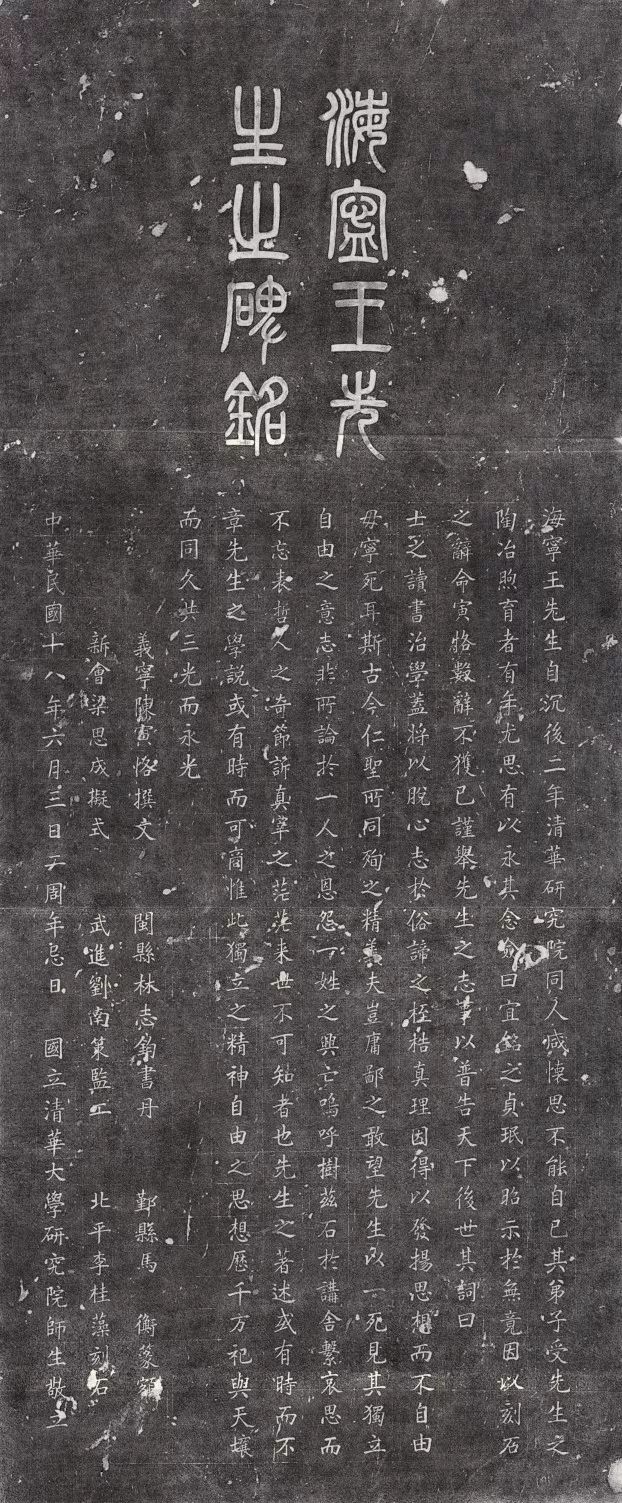 海寧王先
生之碑銘
海寧王先生自沉後二年清華研究院同人咸懷思不能自已其弟子受先生之
陶冶煦育者有年尤思有以永其念僉曰宜銘之貞珉以昭示於無竟因以刻石
之辭命寅恪數辭不獲已謹舉先生之志事以普告天下後世其詞曰
士之讀書治學蓋將以脫心志於俗諦之桎梏真理因得以發揚思想而不自由
毋寧死耳斯古今仁聖所同殉之精義夫豈庸鄙之敢望先生以一死見其獨立
自由之意志非所論於一人之恩怨一姓之興亡嗚呼樹茲石於講舍繫哀思而
不忘表哲人之奇節訴真宰之茫茫来世不可知者也先生之著述或有時而不
章先生之學說或有時而可商惟此獨立之精神自由之思想歷千万祀與天壤
而同久共三光而永光
義寧陳寅恪撰文 閩縣林志鈞書丹 鄞縣馬 衡篆額
新會梁思成擬式 武進劉南策監工 北平李桂藻刻石
中華民國十八年六月三日二周年忌日 國立清華大學研究院師生敬立